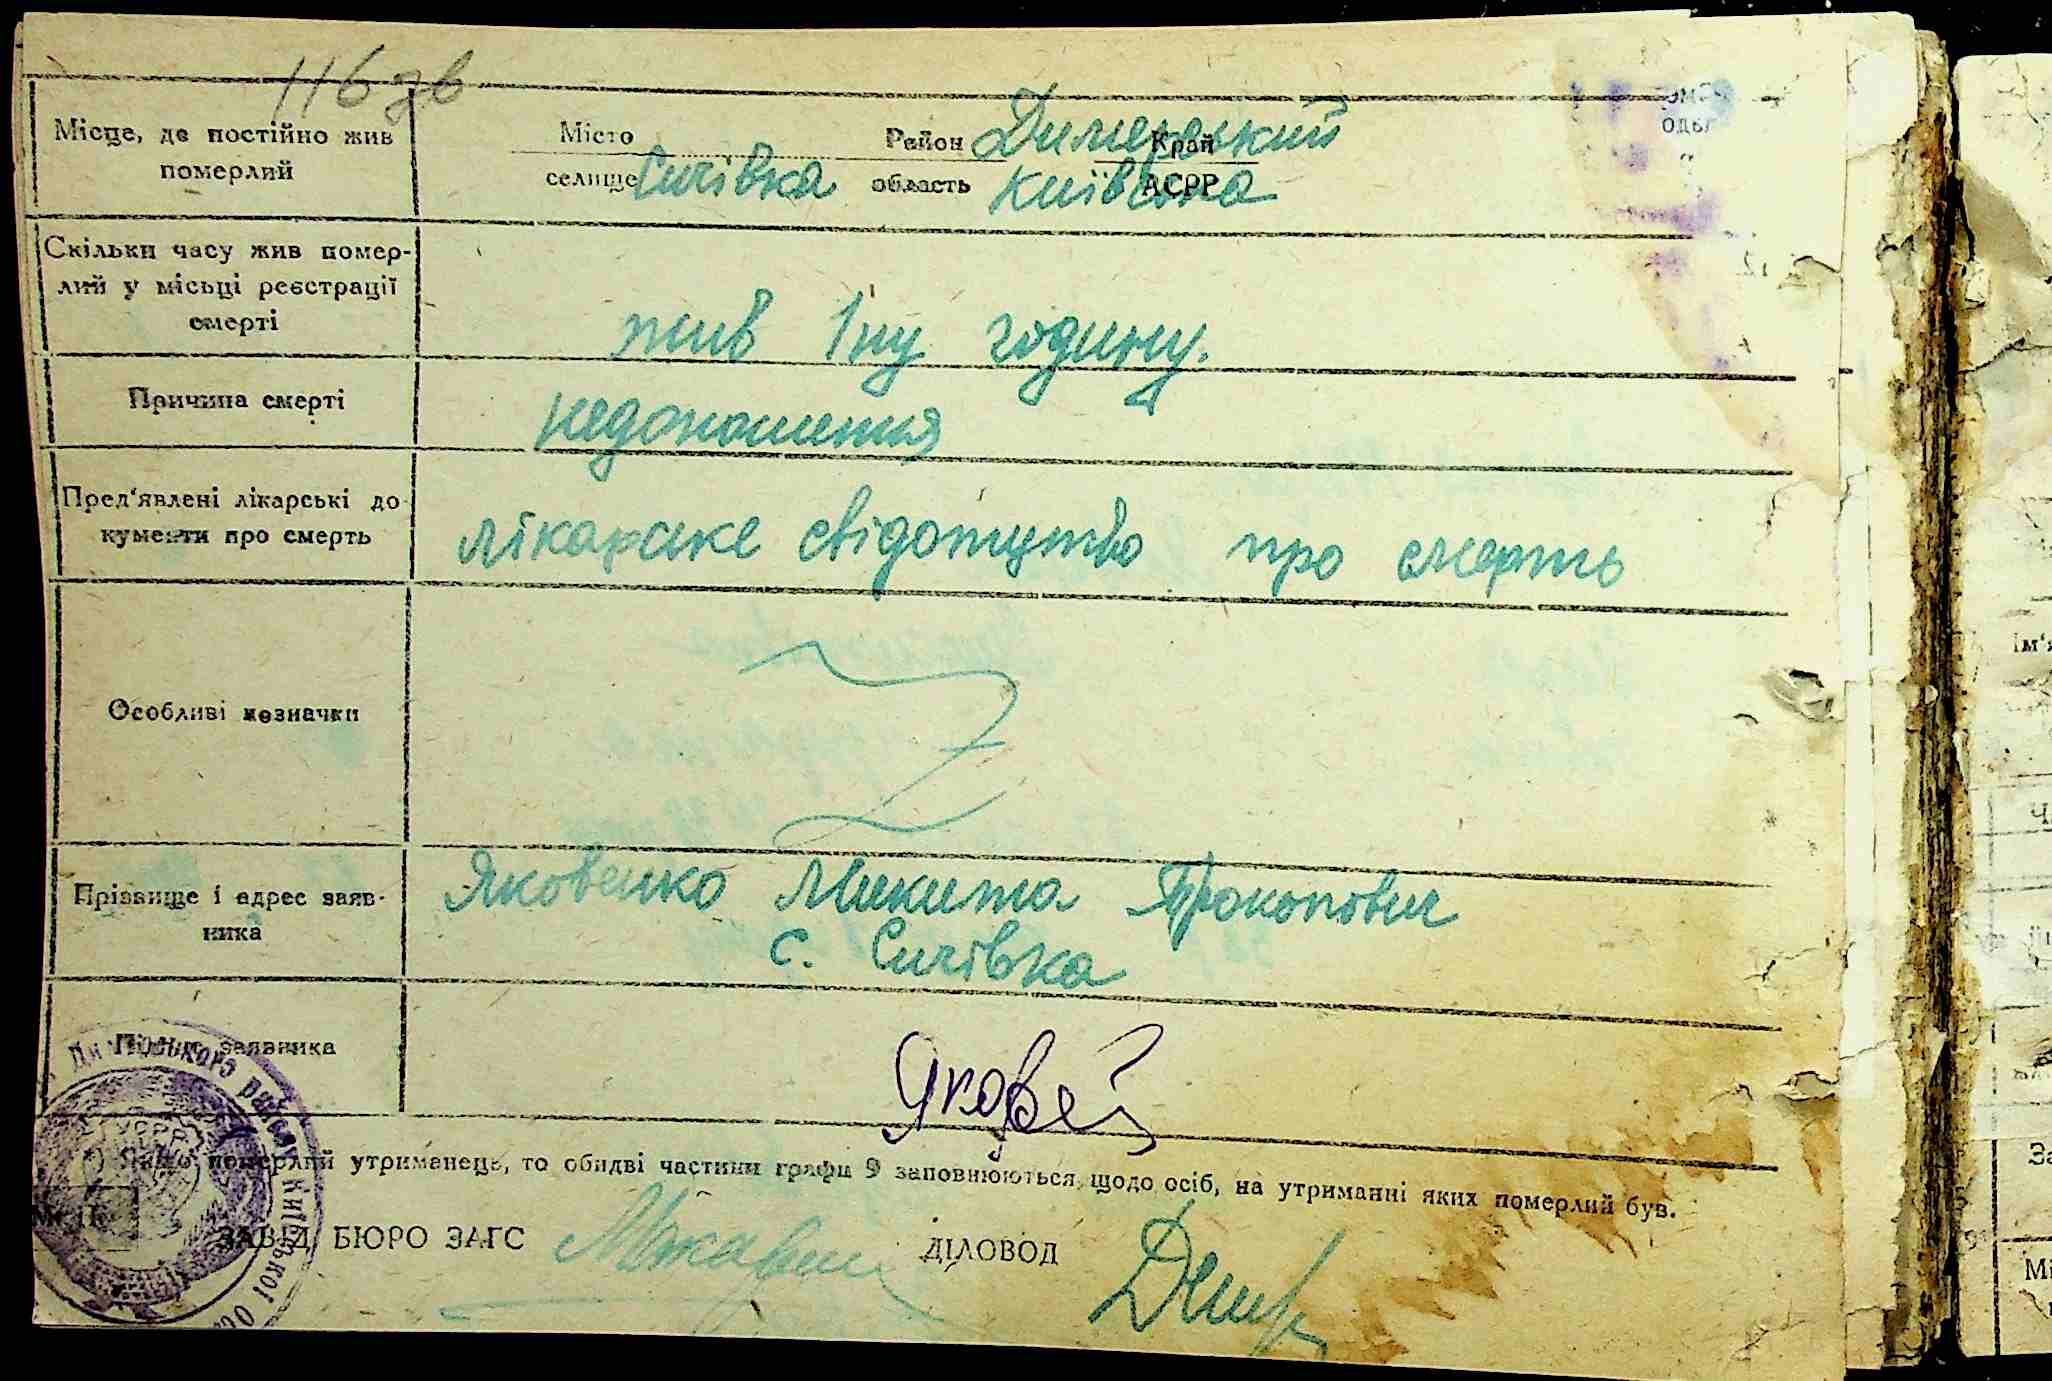 116 зв
Місце, де постійно жив
померлий
Місто
селище Сичівка
Район Димерський
область Київська
Край
АСРР
Скільки часу жив помер-
лий у місьці реєстрації
смерті
жив 1ну годину.
Причина смерті
недоношення
Пред'явлені лікарські до
кументи про смерть
лікарське свідотцтво про смерть
Особливі позначки
Прізвище і адрес заяв-
ника
Яковенко Микита Прокопович
с. Сичівка
Підпис заявника
Яковей
Якщо померлий утриманець, то обидві частини графи 9 заповнюються щодо осіб, на утриманні яких померлий був.
ЗАВІД БЮРО ЗАГС
ДІЛОВОД
району Київської
УСРР
Ім'я